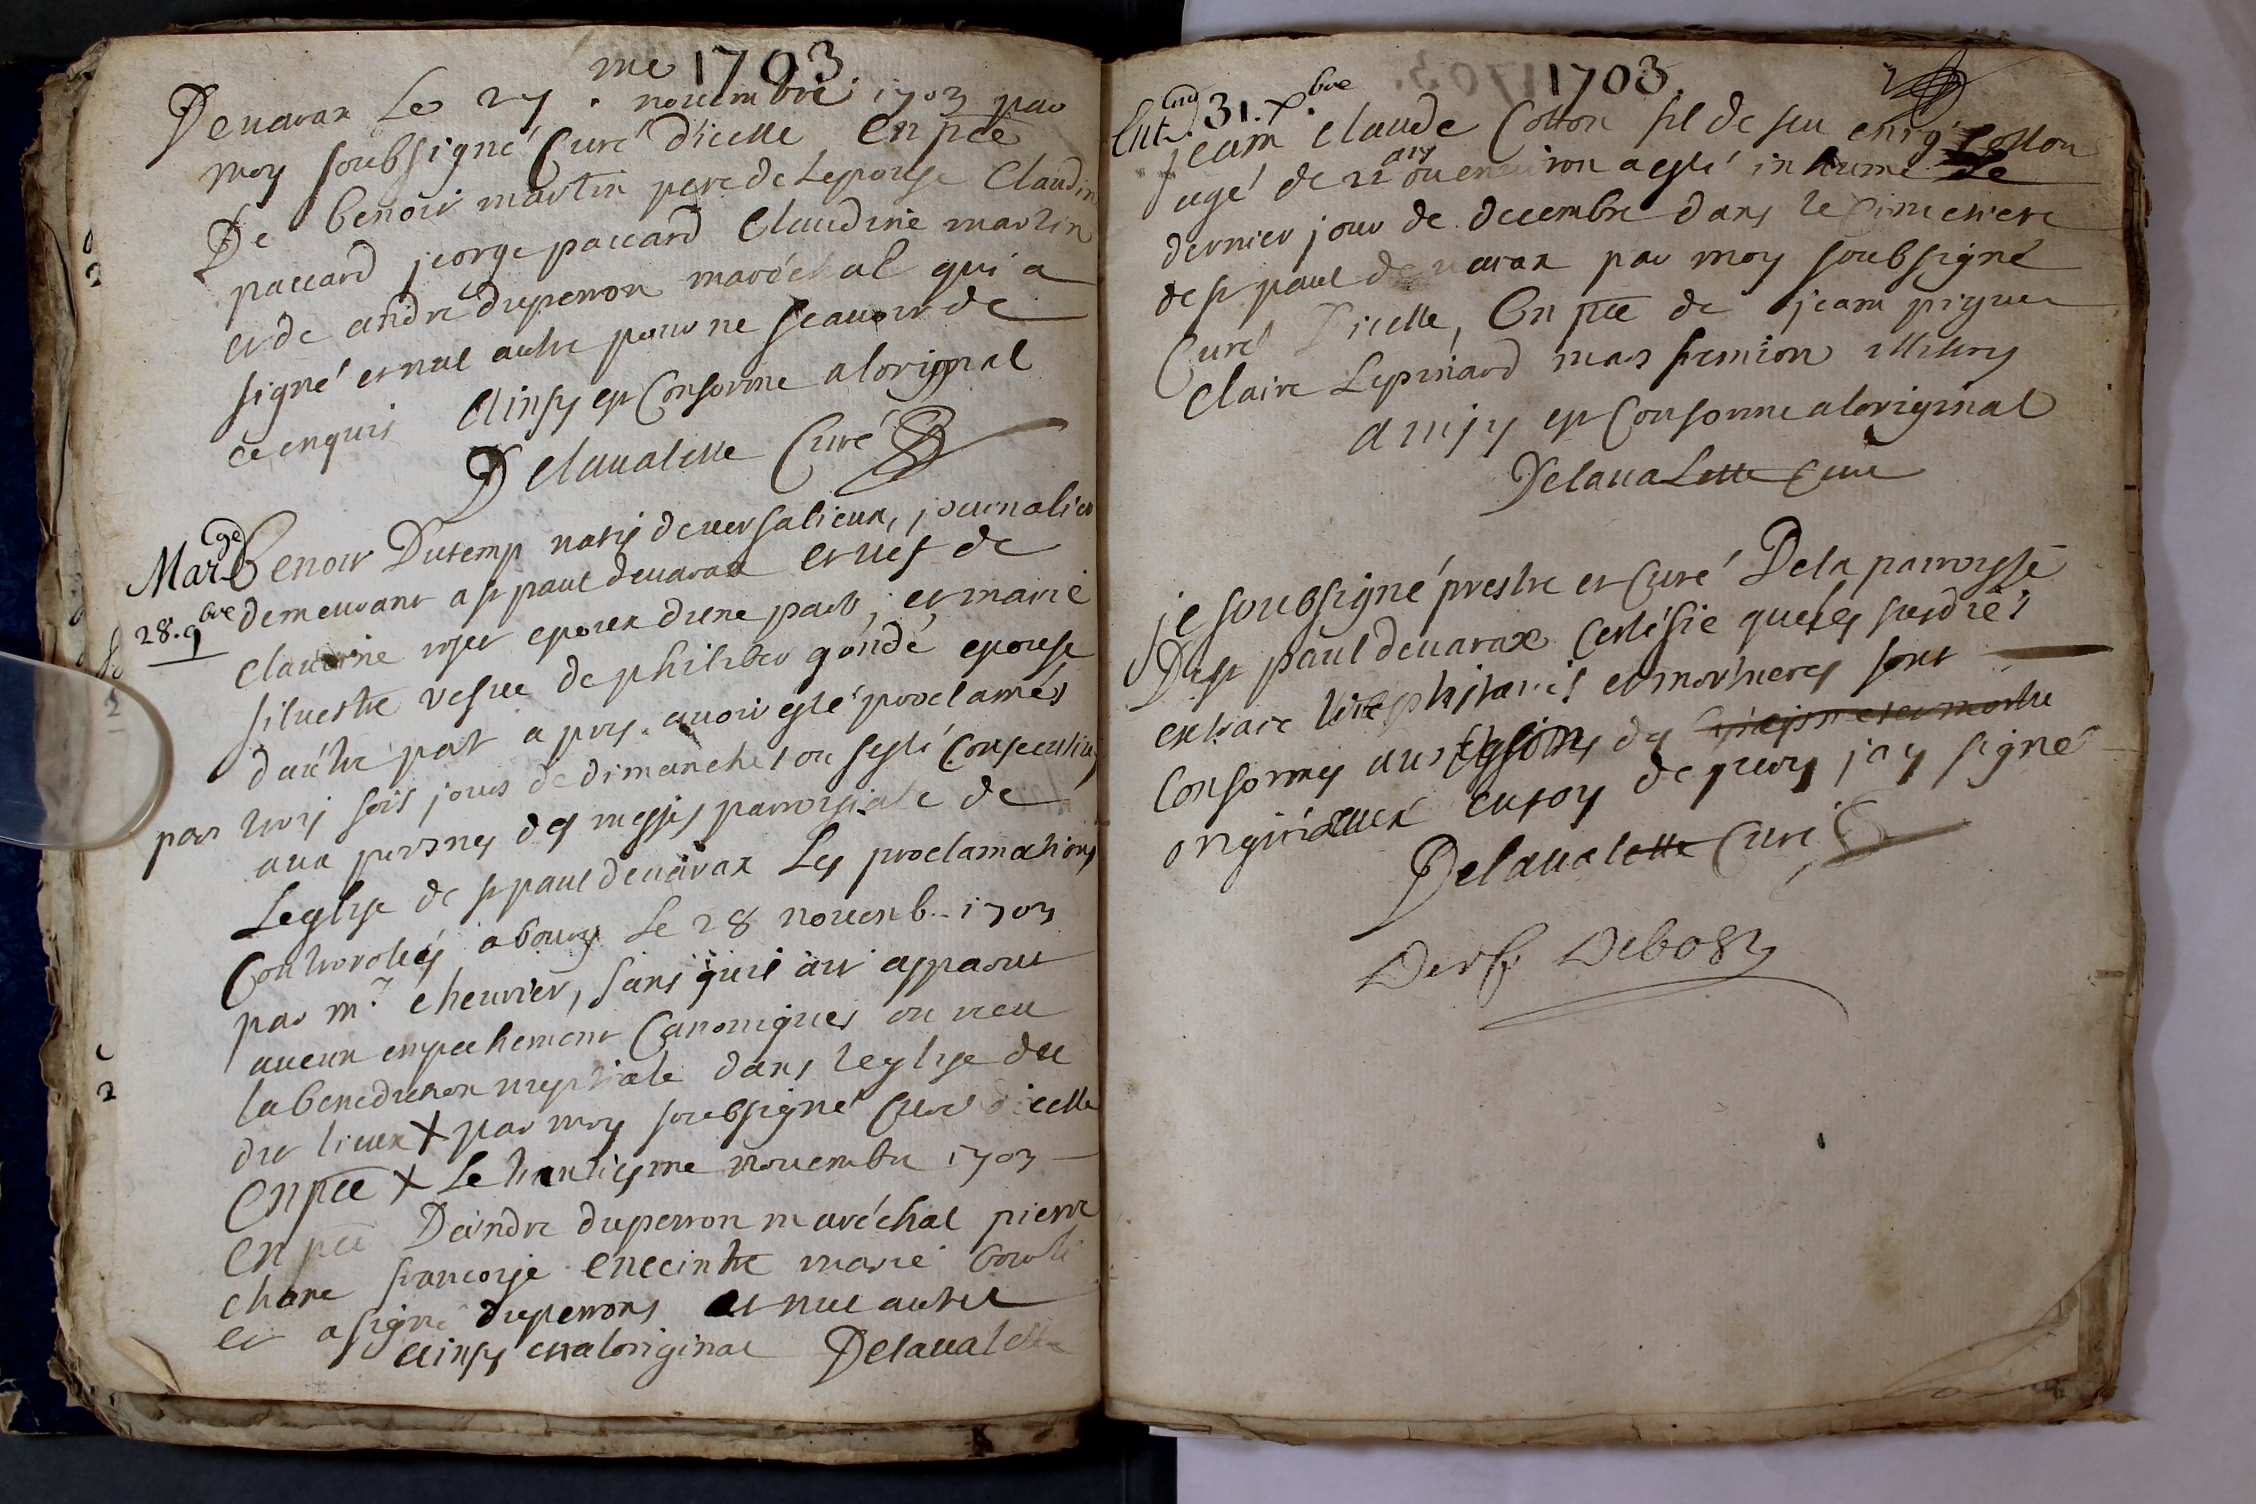 me 1703
Devarax Le 27. novembre 1703 par
moy soubsigné Curé d'icelle En pce
De benoit martin pere de Lepouse Claudin
paccard jeorge paccard Claudine martin
et de andré duperron maréchal qui a
signé et nul autre pour ne scavoir de
ce enquis Ainsy est Conforme a loriginal
Delavalette Curé
Marge
28. 9bre
benoit Dutemp natif de versalieux, journalier
demeurant a st paul devarax et vef de
claudine epoux dune part, et marie
silvestre vefve de philiber gondé epouse
dautre part apres avoir esté proclamés
par trois fois jours de dimanche ou festé Consecutive
aux prosnes des messes parroissiale de
Leglise de st paul devarax Les proclamations
Controlleés a bourg Le 28 novemb. 1703
par mr. chevrier, sans quil ait apparut
aucun empechement Canoniques on receu
la benediction nuptiale dans leglise du
dit lieux + par moy soubsigné Curé dicelle
En pce + Le huitiesme novembre 1703
En pce Dandre duperron maréchal pierre
chane francoise enceinte marie
et a signé duperrons et nul autre
ainsy en aloriginal Delavalette
1703.
Entmt. 31. Xbre
jean claude Cotton fil de feu Cotton
agé de 22 ans ou environ a esté inhumé le
dernier jour de decembre dans le Cimetiere
de st paul devarax par moy soubsigné
Curé Dicelle, En pce de jean
Claire Lepinard
ainsy est Conforme aloriginal
Delavalette Curé
je soubsigné prestre et Curé De la parroisse
De st paul devarax Certifie que les susdits
extrait et mortueres sont
Conformes aux des
originaux en foy de quoy j'ay signé
Delavalette Curé